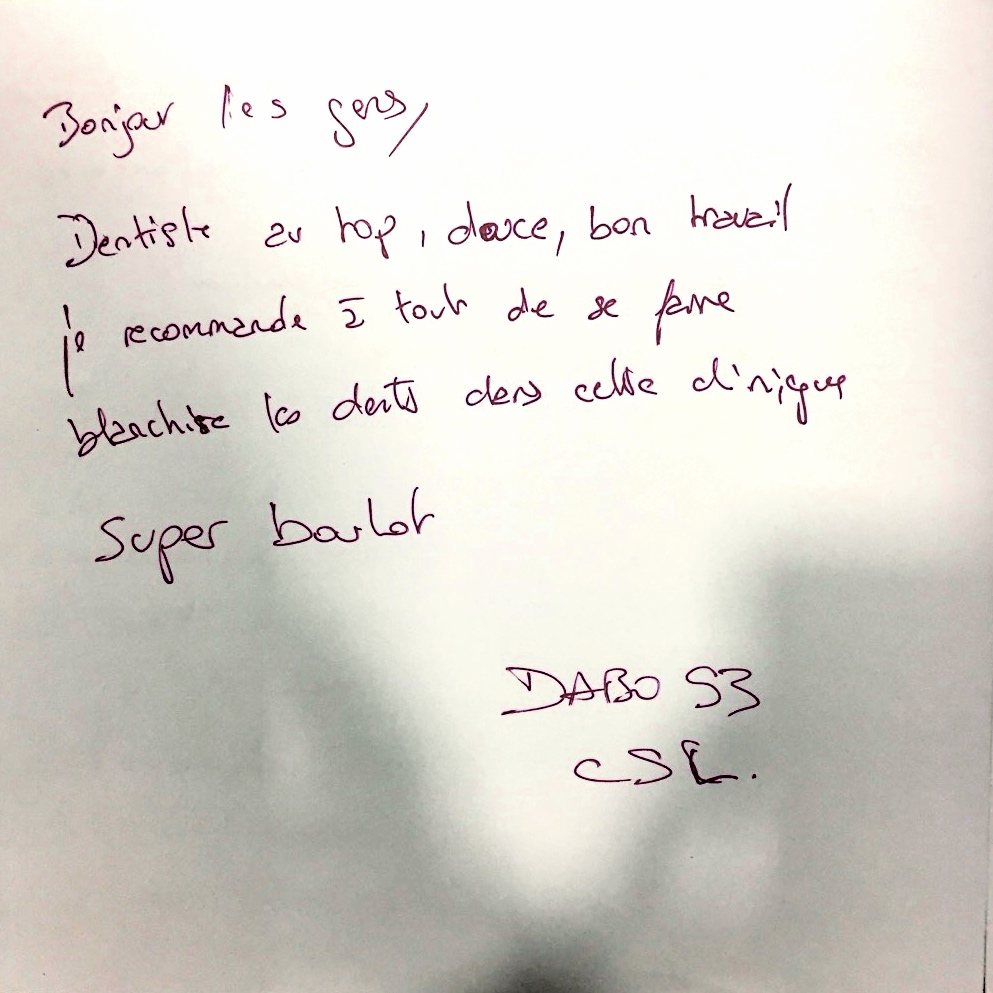 Bonjour les gens,
Dentiste au top, douce, bon travail
je recommande à tout de se faire
blanchire les dents dans cette clinique
Super boulot
DABO S3
CSL.